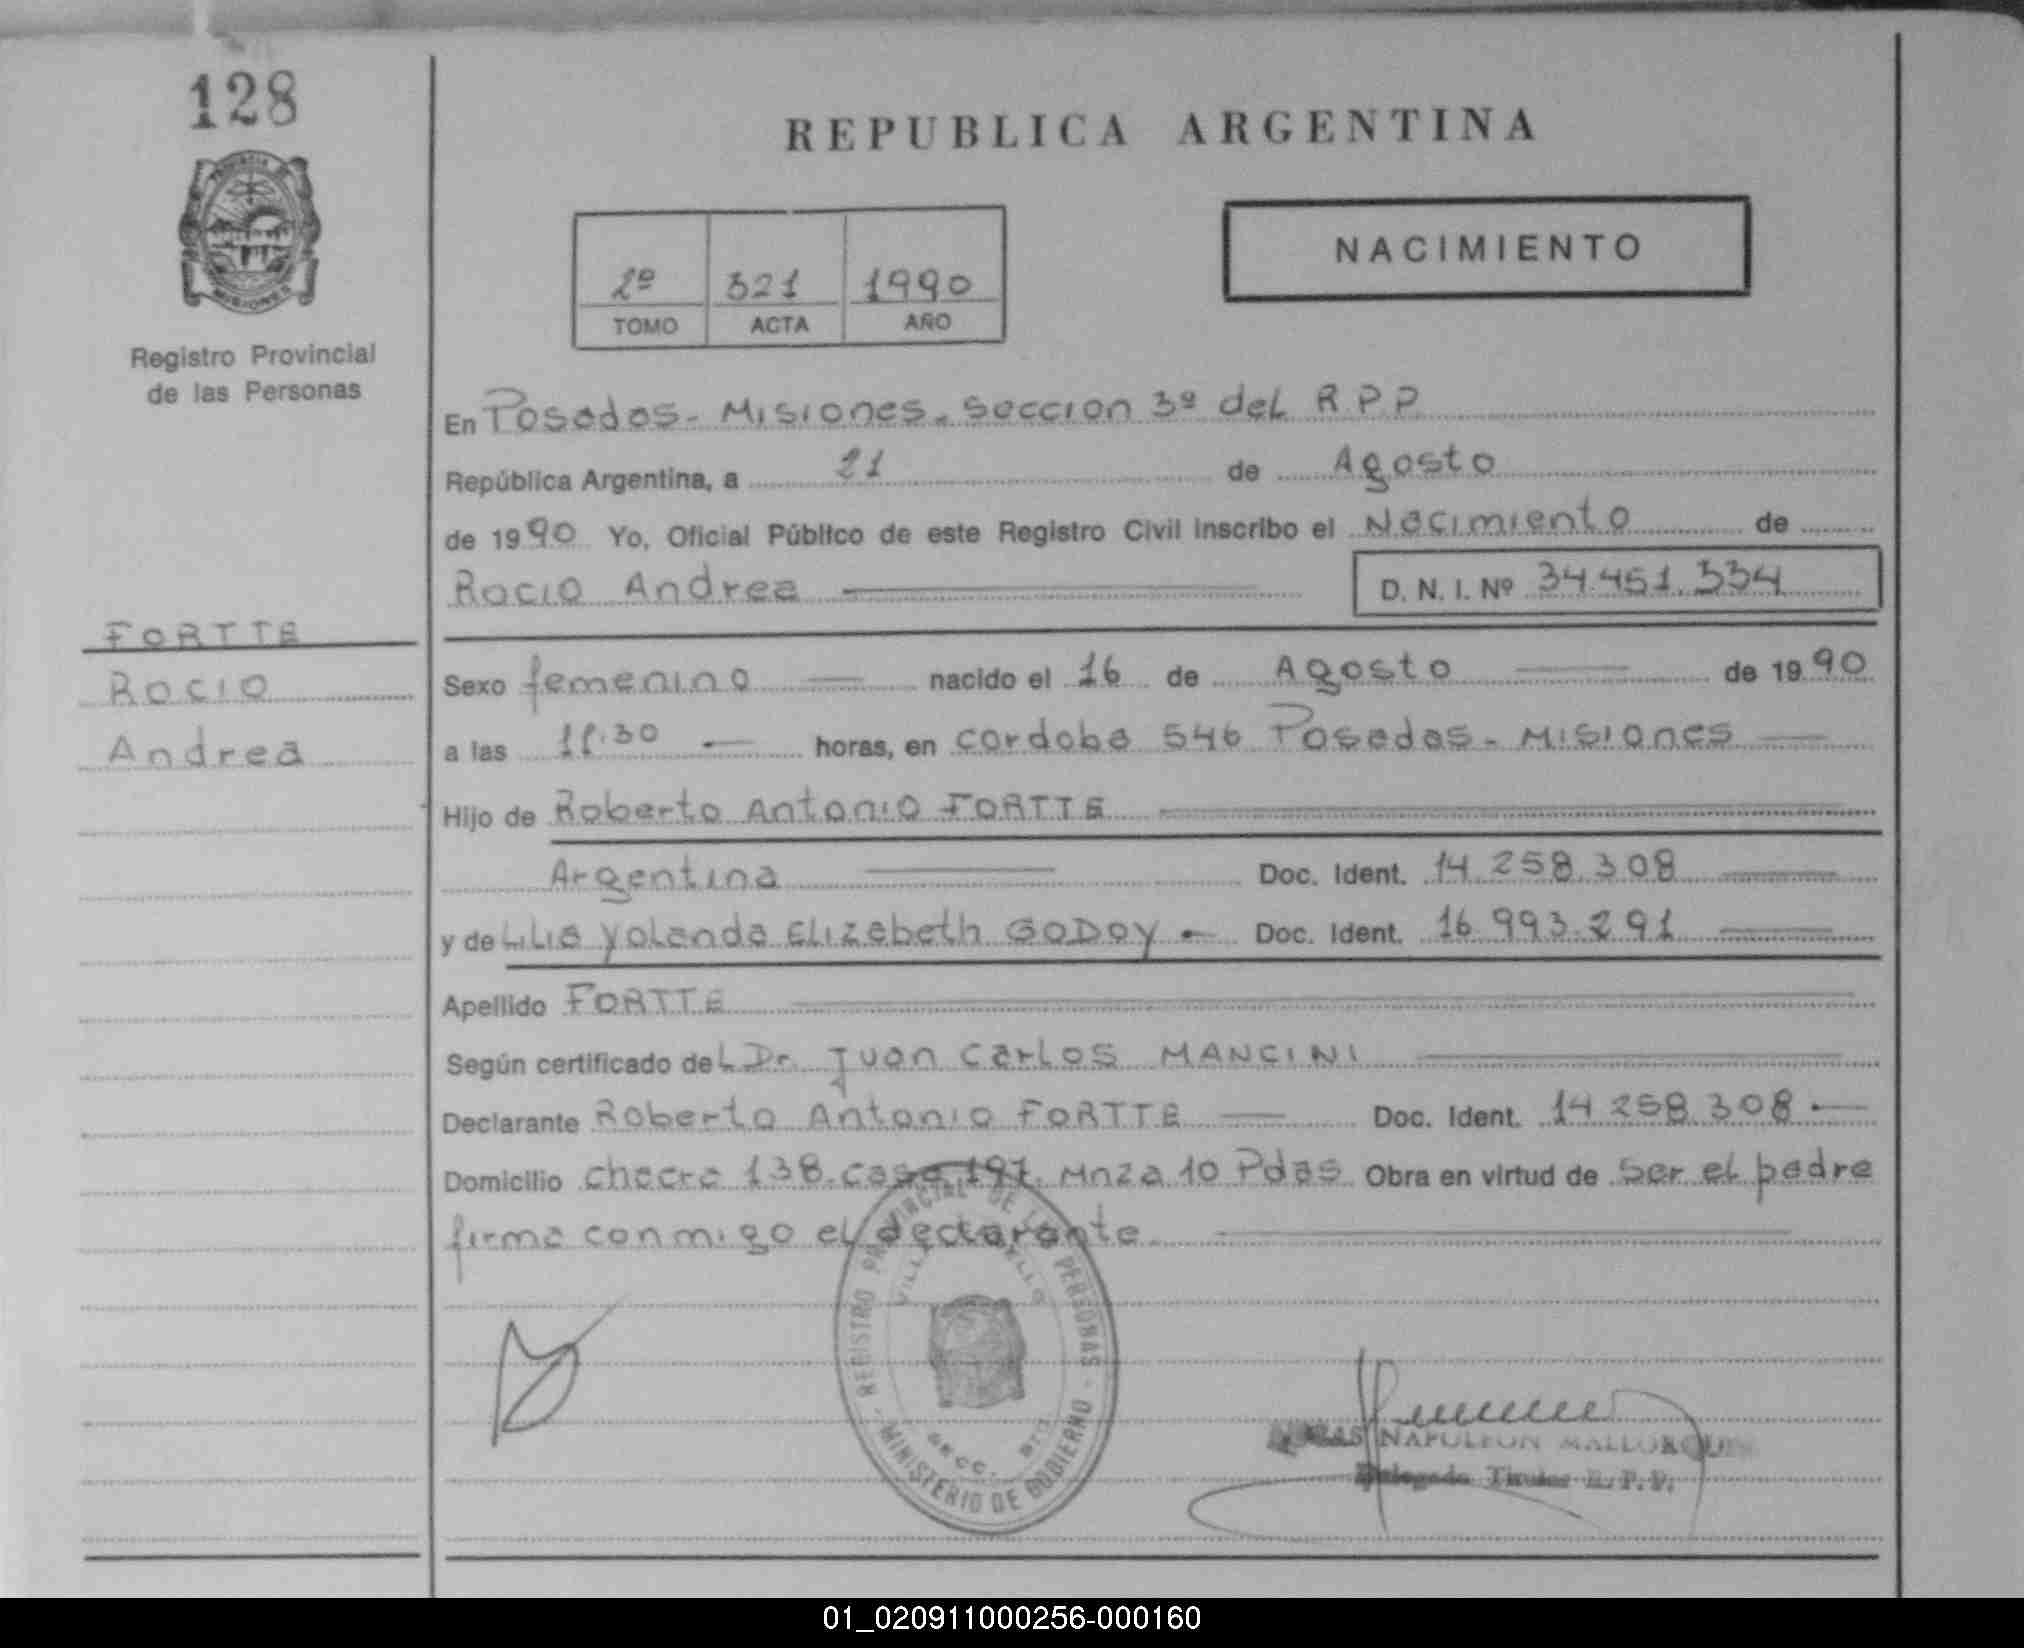 128
REPUBLICA ARGENTINA
NACIMIENTO
2º 321 1990
TOMO ACTA AÑO
MISIONES
Registro Provincial
de las Personas
En Posadas - Misiones. Seccion 3º del R P P
República Argentina, a 21 de Agosto
de 1990 Yo, Oficial Público de este Registro Civil inscribo el Nacimiento de
Rocio Andrea D. N. I. Nº 34.451.334
FORTTE
Rocio
Andrea
Sexo femenino nacido el 16 de Agosto de 1990
a las 11.30 horas, en cordoba 546 Posadas - Misiones
Hijo de Roberto Antonio FORTTE
Argentina Doc. Ident. 14.258.308
y de Lilia Yolanda Elizabeth GODOY Doc. Ident. 16.993.291
Apellido FORTTE
Según certificado del Dr. Juan Carlos MANCINI
Declarante Roberto Antonio FORTTE Doc. Ident. 14.258.308
Domicilio chacra 138. casa 197. Mnza 10 Pdas Obra en virtud de ser el padre
firma conmigo el declarante
REGISTRO PROVINCIAL DE LAS PERSONAS
MINISTERIO DE GOBIERNO
NAPOLEON MALLORQUIN
Delegado Titular R.P.P.
01_020911000256-000160